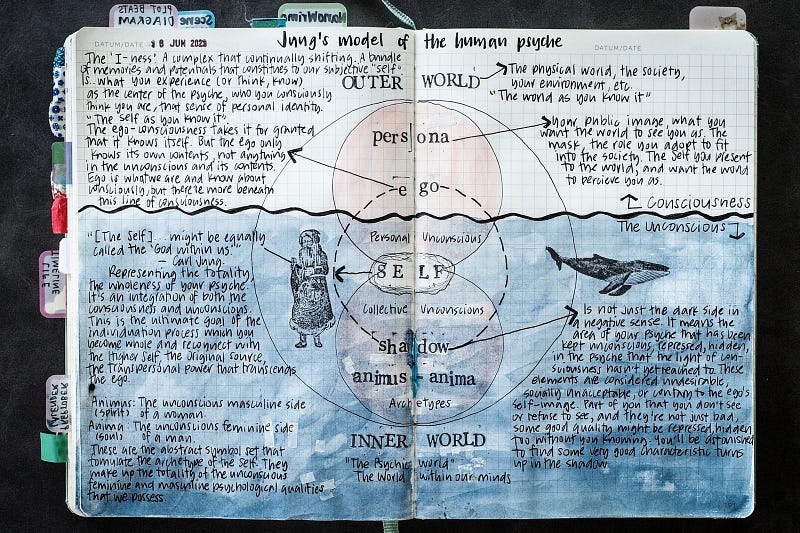 PLOT BEATS
DIAGRAM
Scene
NanoWrimo
DATUM/DATE JUN 2023
DATUM/DATE
Jung's model of the human psyche
The "I-ness". A complex that continually shifting. A bundle
of memories and potentials that constitutes to our subjective "self".
Is what you experience (or think, know)
as the center of the psyche, who you consciously
think you are, that sense of personal identity.
"The self as you know it".
The ego-consciousness takes it for granted
that it knows itself. But the ego only
knows its own contents, not anything
in the unconscious and its contents.
Ego is what we are and know about
consciously, but there're more beneath
this line of consciousness.
OUTER WORLD
The physical world, the society,
your environment, etc.
"The world as you know it"
persona
your public image, what you
want the world to see you as. The
mask, the role you adopt to fit
into the society. The self you present
to the world, and want the world
to percieve you as.
ego
Consciousness
The unconscious
"[The Self]... might be equally
called the 'God within us'."
— Carl Jung.
Representing the totality,
the wholeness of your psyche.
It's an integration of both the
consciousness and unconscious.
This is the ultimate goal of the
individuation process which you
become whole and reconnect with
the Higher Self, the original source,
the transpersonal power that transcends
the ego.
Personal Unconscious
SELF
Collective Unconscious
shadow
animus - anima
Archetypes
Is not just the dark side in
a negative sense. It means the
area of your psyche that has been
kept unconscious, repressed, hidden,
in the psyche that the light of con-
suiousness hasn't yet reached to. These
elements are considered undesirable,
socially unacceptable, or contrary to the ego's
self-image. Part of you that you don't see
or refuse to see, and they're not just bad,
some good quality might be repressed, hidden
too without you knowing. You'll be astonished
to find some very good characteristic turns
up in the shadow.
Animus: The unconscious masculine side
(spirit) of a woman.
Anima: The unconscious feminine side
(soul) of a man.
These are the abstract symbol set that
fomulate the archetype of the self. They
make up the totality of the unconscious
feminine and masculine psychological qualities
that we possess.
INNER WORLD
"The Psychic world"
The World within our minds
TIMELINE
LIFE
PREPTOBER